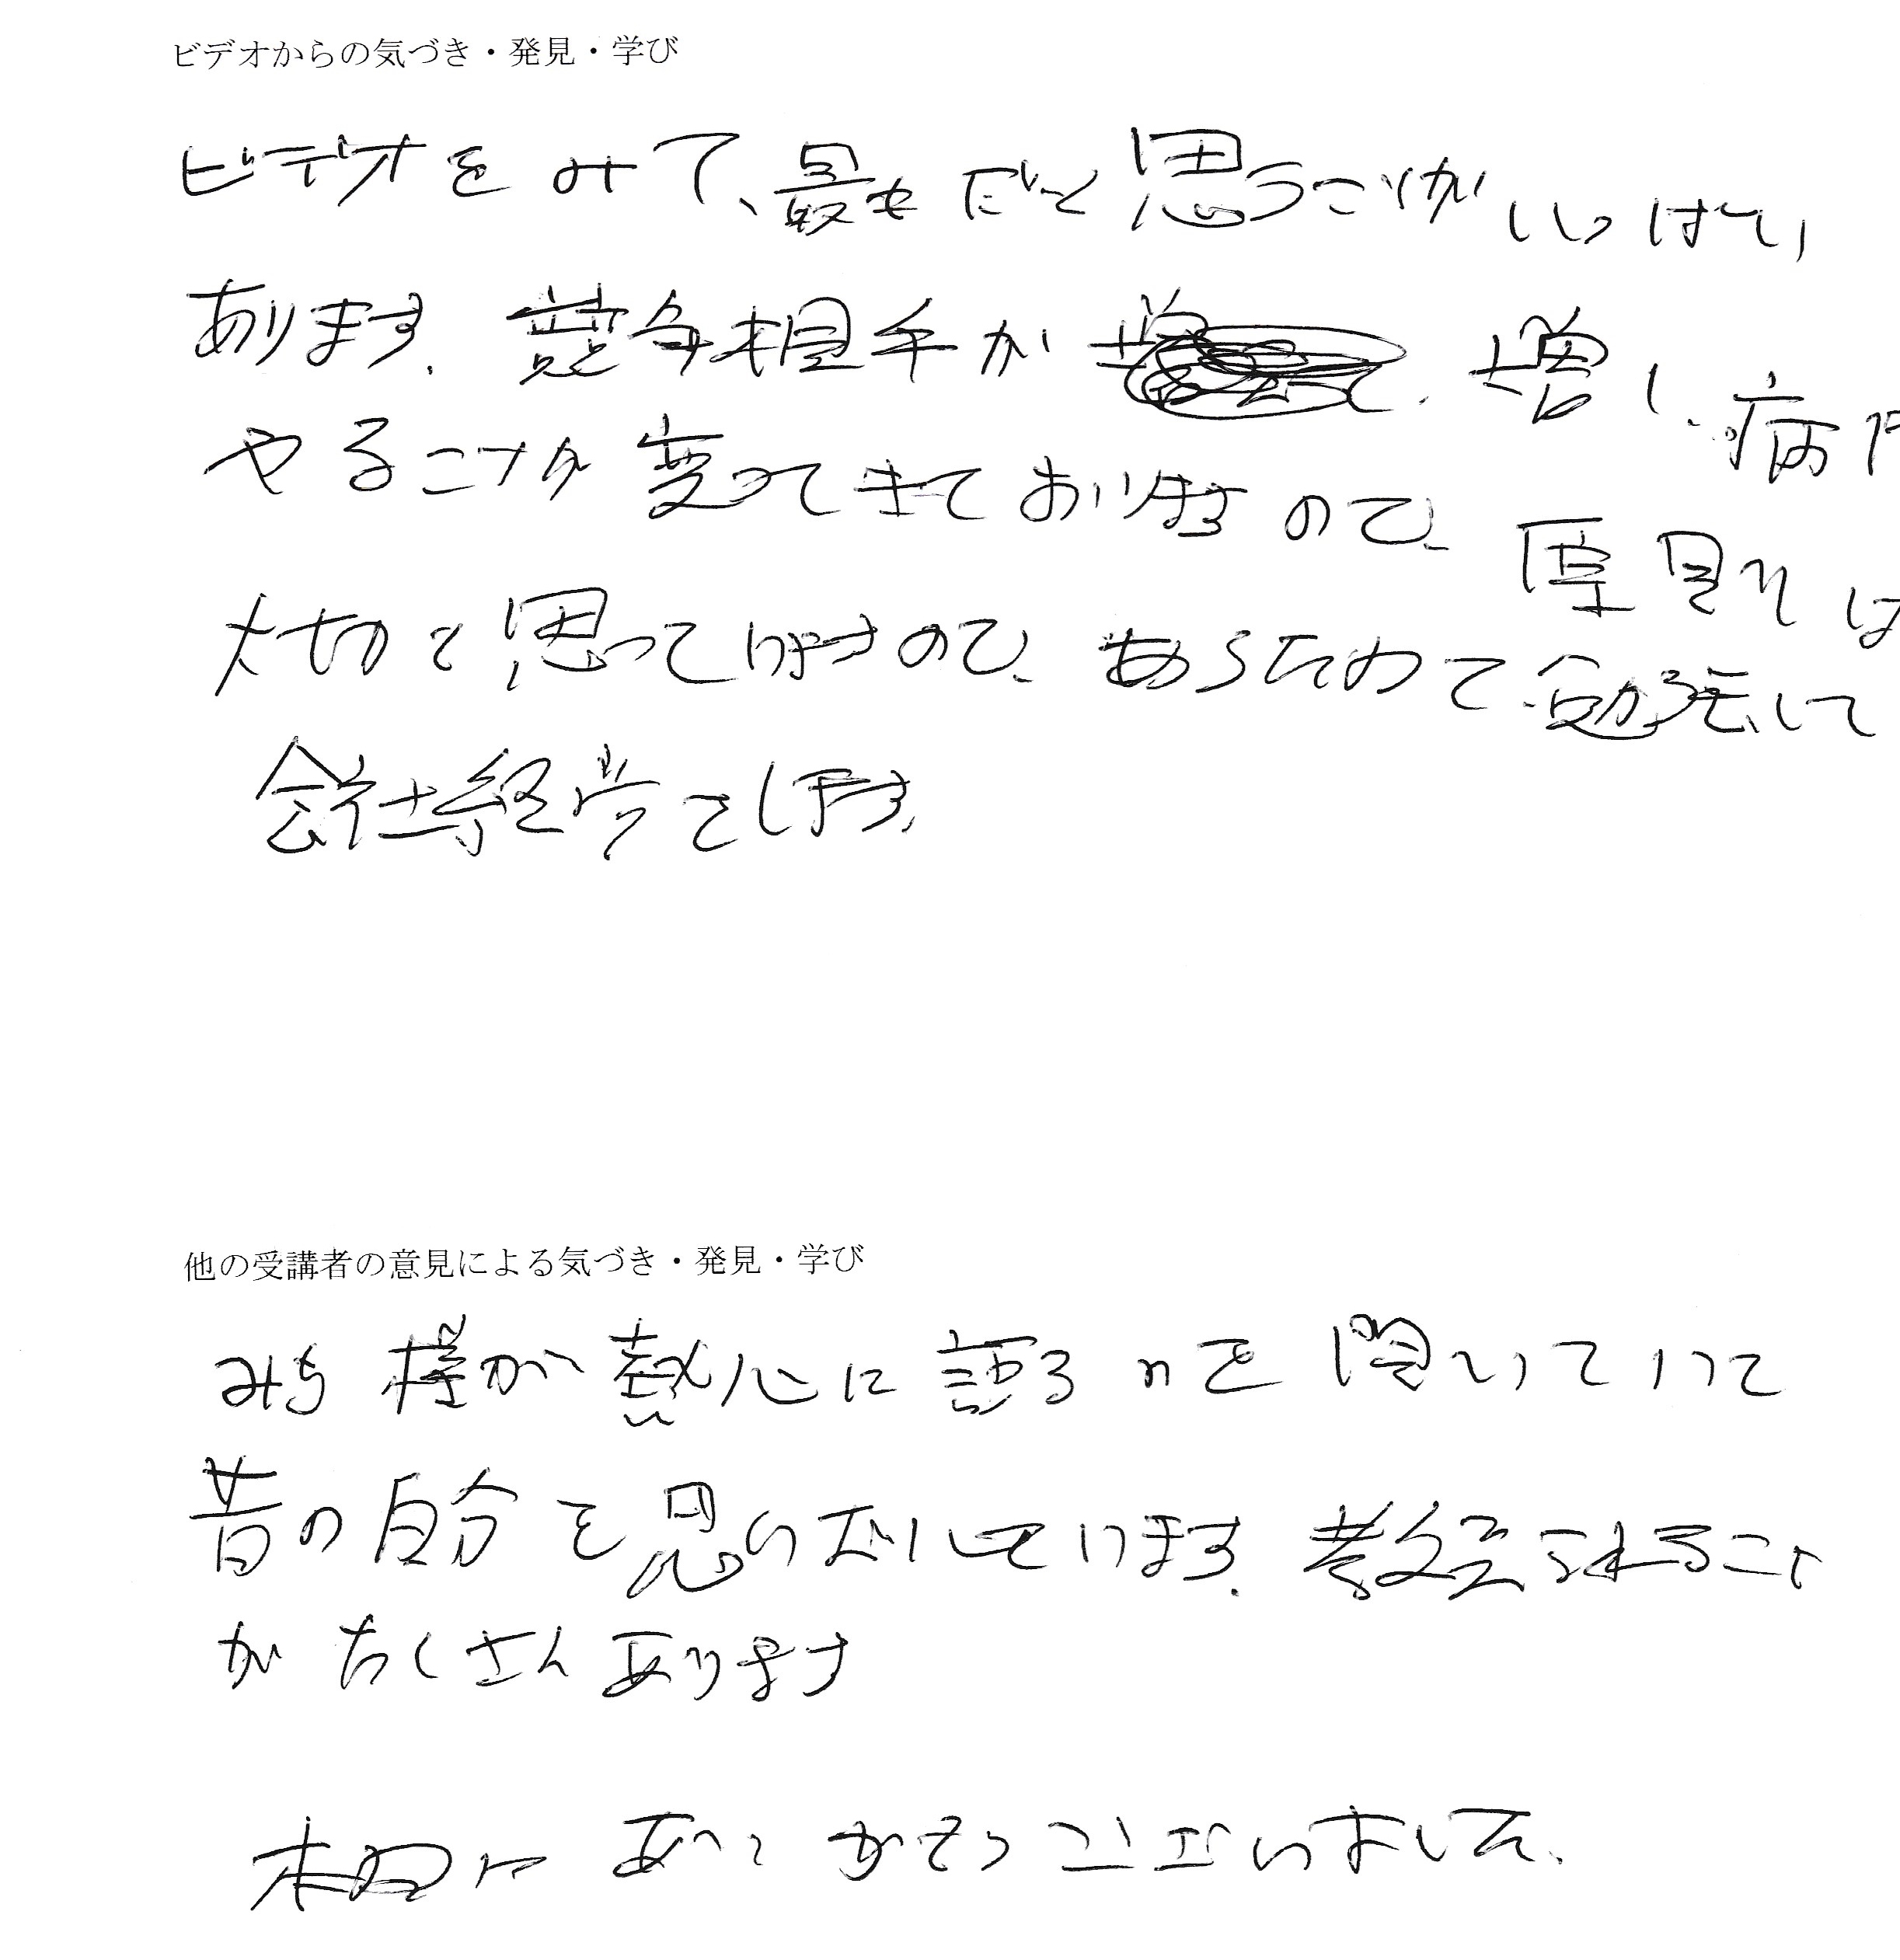 ビデオからの気づき・発見・学び
ビデオをみて、最もだと思うことがいっぱい
あります。競争相手が 増し、病
やることが変ってきておりますので、原 は
大切と思っていますので、あらためて勉強して
会社経営をします。
他の受講者の意見による気づき・発見・学び
みな様が熱心に語るのを聞いていて
昔の自分を思いだしています。教えられること
がたくさんあります
本日は ありがとうございました。